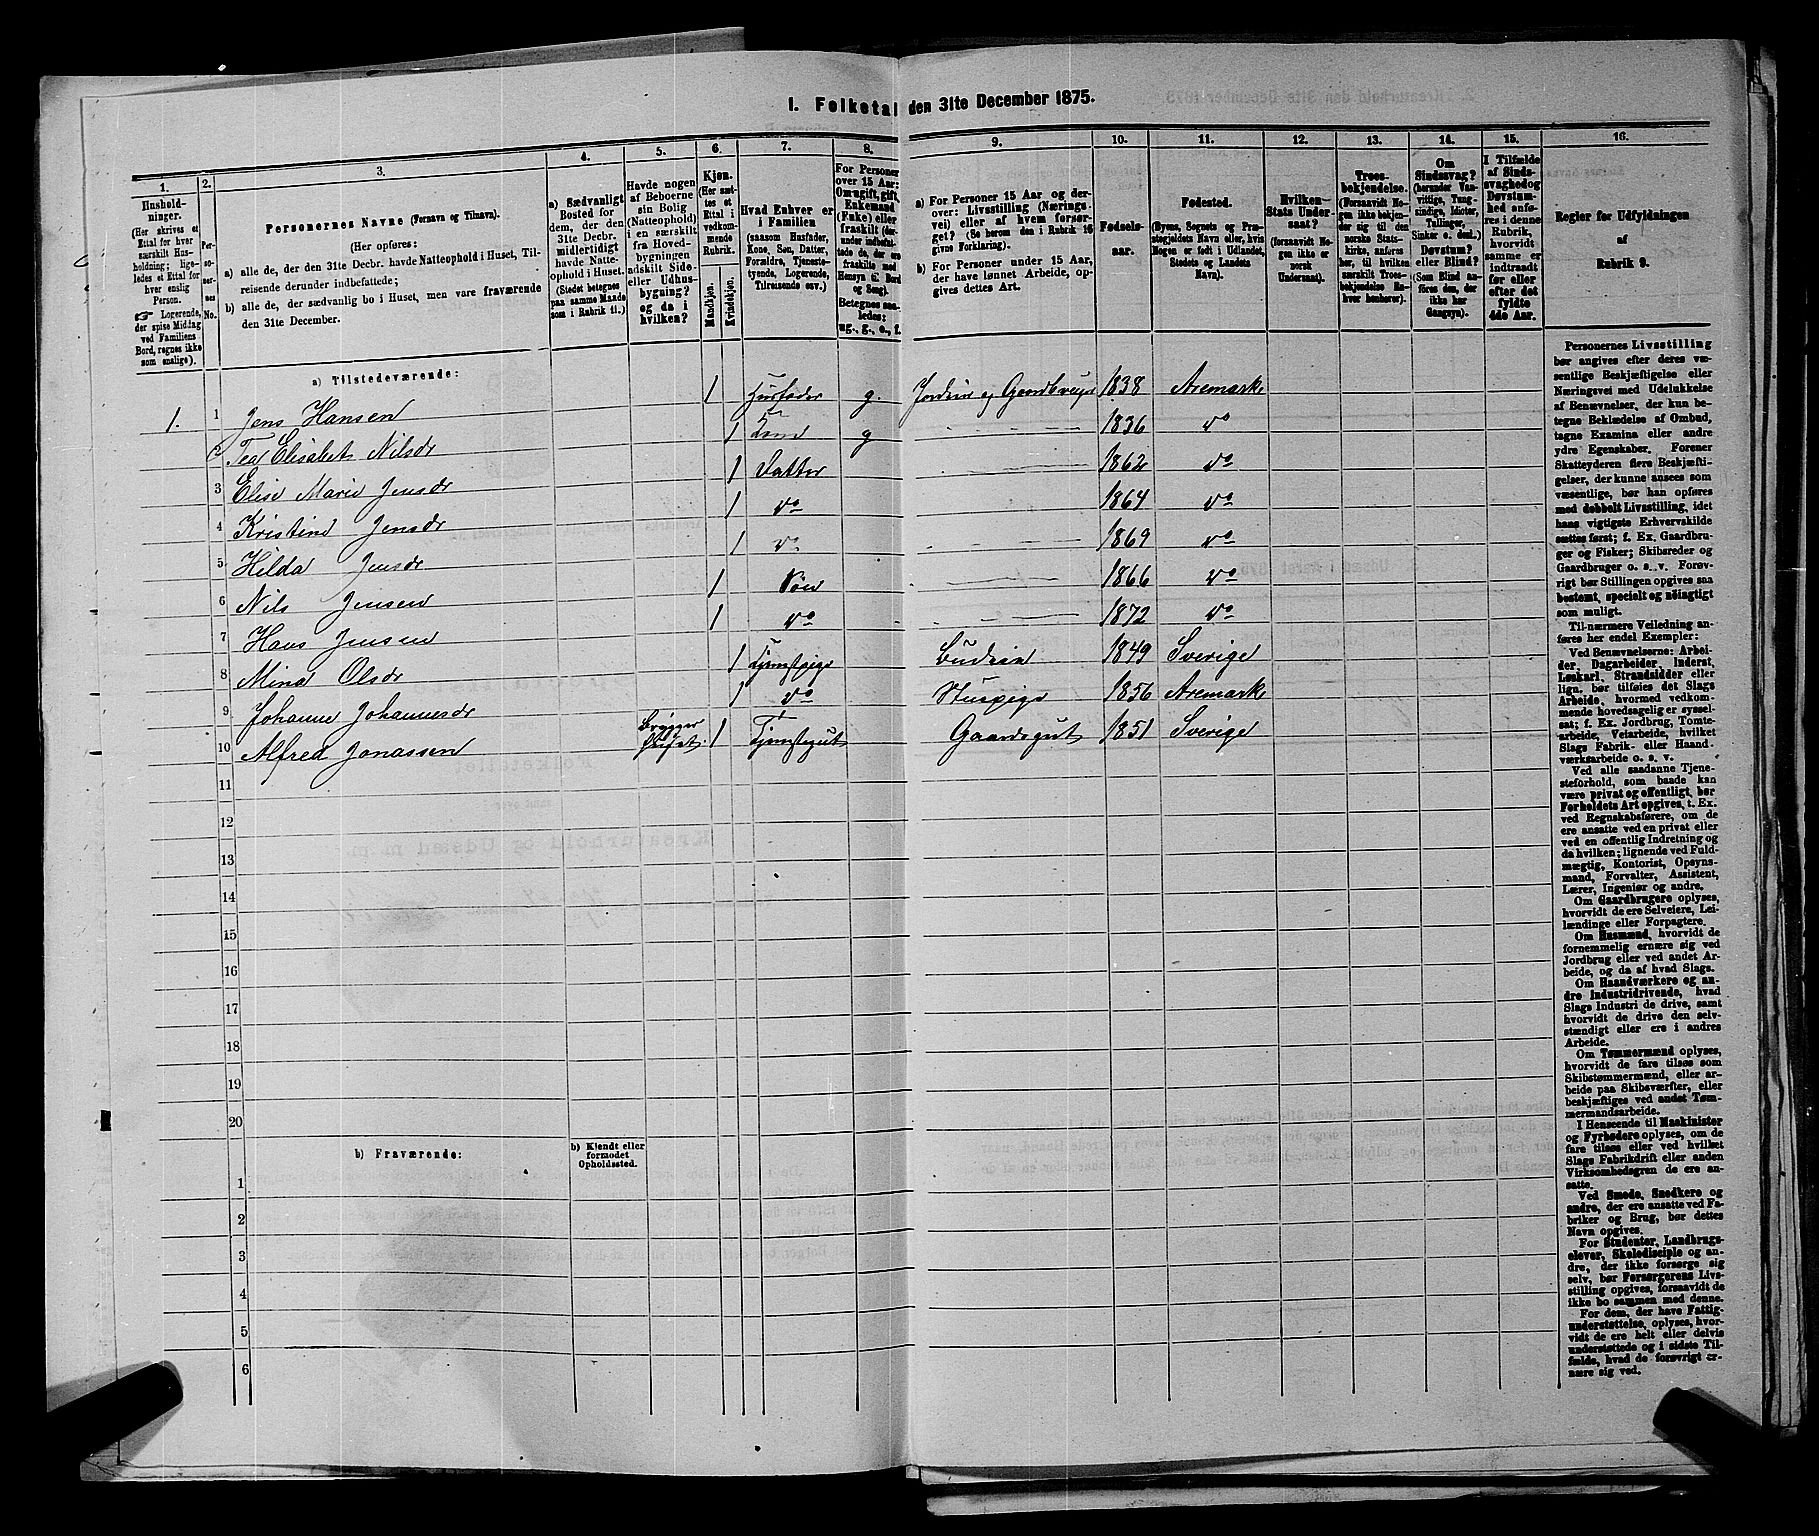 I. Folketal den 31te December 1875.
1.
2.
3.
4.
5.
6.
7.
8.
9.
10.
11.
12.
13.
14.
15.
16.
Hushold-
ninger.
(Her skrives et
Ettal for hver
særskilt Hus-
holdning; lige-
ledes et Ettal for
hver enslig
Person.
☞ Logerende,
der spise Middag
ved Familiens
Bord, regnes ikke
som enslige).
Per-
so-
ner-
nes
No.
Personernes Navne (Fornavn og Tilnavn).
(Her opføres:
a) alle de, der den 31te Decbr. havde Natteophold i Huset, Til-
reisende derunder indbefattede;
b) alle de, der sædvanlig bo i Huset, men vare fraværende
den 31te December.
a) Sædvanligt
Bosted for
dem, der den
31te Decbr.
midlertidigt
havde Natte-
ophold i Huset.
(Stedet betegnes
paa samme Maade
som i Rubrik 11.)
Havde nogen
af Beboerne
sin Bolig
(Natteophold)
i en særskilt
fra Hoved-
bygningen
adskilt Side-
eller Udhus-
bygning?
og da i
hvilken?
Kjøn.
(Her sæt-
tes et
Ettal i
vedkom-
mende
Rubrik.
Mandkjøn.
Kvindekjøn.
Hvad Enhver er
i Familien
(saasom Husfader,
Kone, Søn, Datter,
Forældre, Tjeneste-
tyende, Logerende,
Tilreisende osv.)
For Personer
over 15 Aar:
Om ugift, gift,
Enkemand
(Enke) eller
fraskilt (der-
under indbefat-
tede de, der ere
fraskilte med
Hensyn til Bord
og Seng).
Betegnes saa-
ledes:
ug., g., e., f.
a) For Personer 15 Aar og der-
over: Livsstilling (Nærings-
vei) eller af hvem forsør-
get? (Se herom den i Rubrik 16
givne Forklaring).
b) For Personer under 15 Aar,
der have lønnet Arbeide, op-
gives dettes Art.
Fødsels-
aar.
Fødested.
(Byens, Sognets og Præ-
stegjeldets Navn eller, hvis
Nogen er født i Udlandet,
Stedets og Landets
Navn).
Hvilken
Stats Under-
saat?
(forsaavidt No-
gen ikke er
norsk
Undersaat).
Troes-
bekjendelse.
(Forsaavidt No-
gen ikke bekjen-
der sig til den
norske Stats-
kirke, anføres
her, til hvilken
særskilt Troes-
bekjendelse En-
hver henhører).
Om
Sindssvag?
(herunder Van-
vittige, Tung-
sindige, Idioter,
Tullinger,
Sinker o. desl.)
Døvstum?
eller Blind?
(Som Blind an-
føres den, der
ikke har
Gangsyn).
I Tilfælde
af Sinds-
svaghed og
Døvstum-
hed anfø-
res i denne
Rubrik,
hvorvidt
samme er
indtraadt
før eller
efter det
fyldte
4de Aar.
Regler for Udfyldningen
af
Rubrik 9.
a) Tilstedeværende:
1. 1 Jens Hansen 1 Husfader g. Jordeier og Gaardbruger 1838 Aremarke
2 Tea Elisabet Nilsdr 1 Kone g 1836 do
3 Elise Marie Jensdr 1 Datter 1862 do
4 Kristine Jensdr 1 do 1864 do
5 Hilda Jensdr 1 do 1869 do
6 Nils Jensen 1 Søn 1866 do
7 Hans Jensen 1 do 1872 do
8 Mina Olsdr 1 Tjenstpige Budeie 1849 Sverige
9 Johanne Johannesdr 1 do Huspige 1856 Aremarke
10 Alfred Jonassen 1 Tjenstegut Gaardsgut 1851 Sverige
11
12
13
14
15
16
17
18
19
20
b) Fraværende:
b) Kjendt eller
formodet
Opholdssted.
1
2
3
4
5
6
Personernes Livsstilling
bør angives efter deres væ-
sentlige Beskjæftigelse eller
Næringsvei med Udelukkelse
af Benævnelser, der kun be-
tegne Beklædelse af Ombud,
tagne Examina eller andre
ydre Egenskaber. Forener
Skatteyderen flere Beskjæfti-
gelser, der kunne ansees som
væsentlige, bør han opføres
med dobbelt Livsstilling, idet
hans vigtigste Erhvervskilde
sættes først; f. Ex. Gaardbru-
ger og Fisker; Skibsreder og
Gaardbruger o. s. v. Forøv-
rigt bør Stillingen opgives saa
bestemt, specielt og nøiagtigt
som muligt.
Til nærmere Veiledning an-
føres her endel Exempler:
Ved Benævnelserne: Arbei-
der, Dagarbeider, Inderst,
Løskarl, Strandsidder eller
lign. bør tilføies det Slags
Arbeide, hvormed vedkom-
mende hovedsagelig er syssel-
sat; f. Ex. Jordbrug, Tomte-
arbeide, Veiarbeide, hvilket
Slags Fabrik- eller Haand-
værksarbeide o. s. v.
Ved alle saadanne Tjene-
steforhold, som baade kan
være privat og offentligt, bør
Forholdets Art opgives, t. Ex.
ved Regnskabsførere, om de
ere ansatte ved en privat eller
en offentlig Indretning og
da hvilken; lignende ved Fuld-
mægtig, Kontorist, Opsyns-
mand, Forvalter, Assistent,
Lærer, Ingeniør og andre.
Om Gaardbrugere oplyses,
hvorvidt de ere Selveiere, Lei-
lændinge eller Forpagtere.
Om Husmænd, hvorvidt de
fornemmelig ernære sig ved
Jordbrug eller ved andet Ar-
beide, og da af hvad Slags.
Om Haandværkere og an-
dre Industridrivende, hvad
Slags Industri de drive, samt
hvorvidt de drive den selv-
stændigt eller ere i andres
Arbeide.
Om Tømmermænd oplyses,
hvorvidt de fare tilsøs som
Skibstømmermænd, eller ar-
beide paa Skibsværfter, eller
beskjæftiges ved andet Tøm-
mermandsarbeide.
I Henseende til Maskinister
og Fyrbødere oplyses, om de
fare tilsøs eller ved hvilket
Slags Fabrikdrift eller anden
Virksomhedsgren de ere an-
satte.
Ved Smede, Snedkere og
andre, der ere ansatte ved Fa-
briker og Brug, bør dettes
Navn opgives.
For Studenter, Landbrugs-
elever, Skoledisciple og an-
dre, der ikke forsørge sig
selv, bør Forsørgerens Livs-
stilling opgives, forsaavidt de
ikke bo sammen med denne.
For dem, der have Fattig-
understøttelse, oplyses, hvor-
vidt de ere helt eller delvis
understøttede og i sidste Til-
fælde, hvad de forøvrigt er-
nære sig ved.